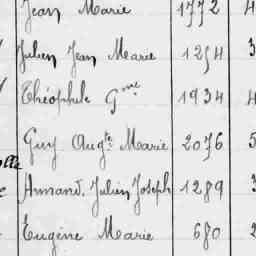 Jean Marie 1772 4
Julien Jean Marie 1254 3
Théophile Gme 1934 4
Guy Augte Marie 2076 5
Armand. Julien Joseph 1289 3
Eugène Marie 680 2